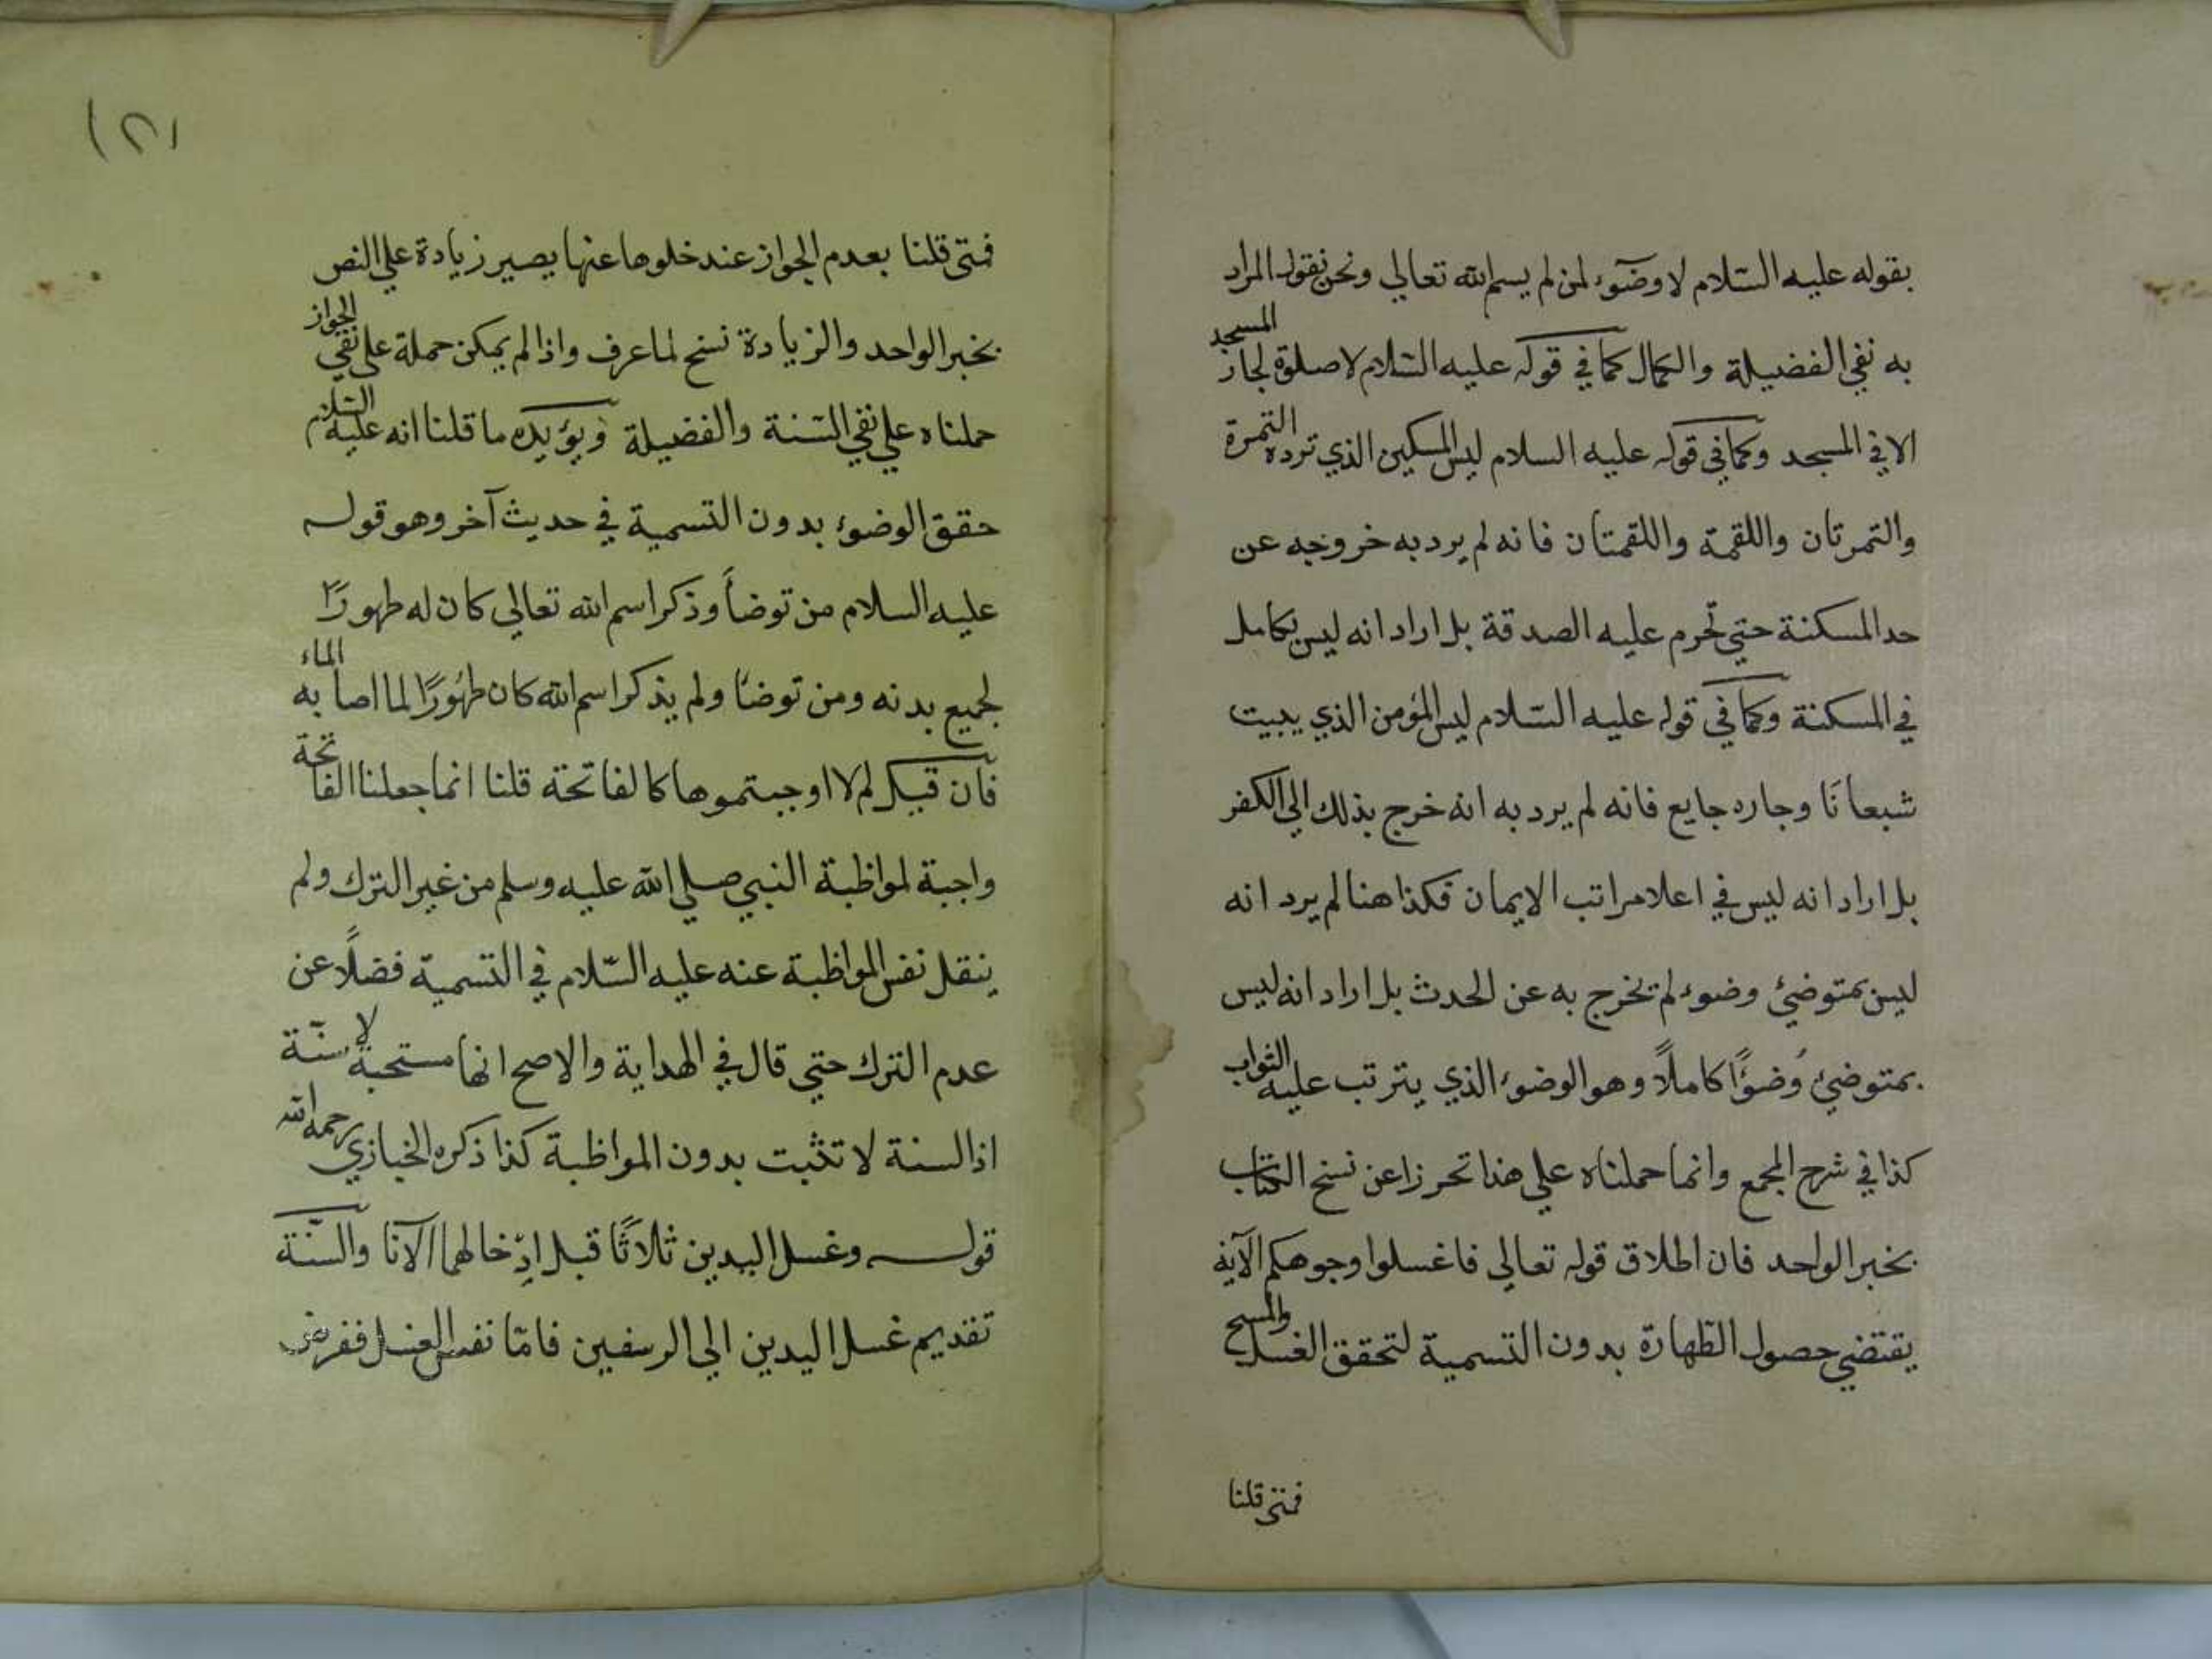 بقوله عليه السّلام لا وضوٓء لمن لم يسم الله تعالي ونحن نقول المراد
به نفي الفضيلة والكمال كما في قوله عليه السّلام لا صلوة لجار المسجد
الا في المسجد وكما في قوله عليه السلام ليس المسكين الذي ترده التمرة
والتمرتان واللقمة واللقمتان فانه لم يرد به خروجه عن
حد المسكنة حتي تحرم عليه الصدقة بل اراد انه ليس بكامل
في المسكنة وكما في قوله عليه السّلام ليس المؤمن الذي يبيت
شبعانًا وجاره جايع فانه لم يرد به انه خرج بذلك الي الكفر
بل اراد انه ليس في اعلا مراتب الايمان فكذا هنا لم يرد انه
ليس بمتوضئ وضوء لم تخرج به عن الحدث بل اراد انه ليس
بمتوضئ وُضؤًا كاملًا وهو الوضوء الذي يترتب عليه الثواب
كذا في شرح المجمع وانما حملناه علي هذا تحرزا عن نسخ الكتاب
بخبر الواحد فان اطلاق قوله تعالي فاغسلوا وجوهكم الآية
يقتضي حصول الطهارة بدون التسمية لتحقق الغسل والمسح
فمتي قلنا
(٢١
فمتي قلنا بعدم الجواز عند خلوها عنها يصير زيادة علي النص
بخبر الواحد والزيادة نسخ لما عرف واذا لم يمكن حملة علي نفي الجواز
حملناه علي نفي السّنة والفضيلة ويؤيده ما قلنا انه عليه السّلام
حقق الوضوء بدون التسمية في حديث آخر وهو قوله
عليه السلام من توضأ وذكر اسم الله تعالي كان له طهورًا
لجميع بدنه ومن توضأ ولم يذكر اسم الله كان طهُورًا لما اصابه الماء
فان قيل لم لا اوجبتموها كالفاتحة قلنا انما جعلنا الفاتحة
واجبة لمواظبة النبي صلي الله عليه وسلم من غير الترك ولم
ينقل نفس المواظبة عنه عليه السّلام في التسمية فضلًا عن
عدم الترك حتي قال في الهداية والاصح انها مستحبة لا سنّة
اذ السنة لا تثبت بدون المواظبة كذا ذكره الخبازي رحمه الله
قوله وغسل اليدين ثلاثًا قبل ادخالهما الآنا والسّنّة
تقديم غسل اليدين الي الرسغين فامّا نفس الغسل ففرض